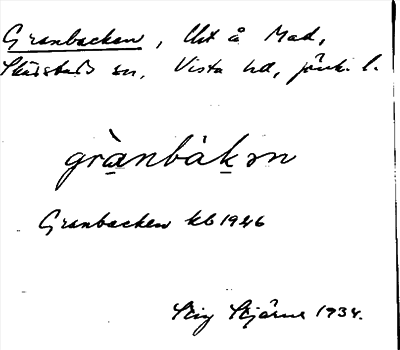 Granbacken, Utt å Mad,
Skärstads sn, Vista hd, Jönk. l.
grànbàkən
Granbacken kb 1946
Stig Stjärne 1934.